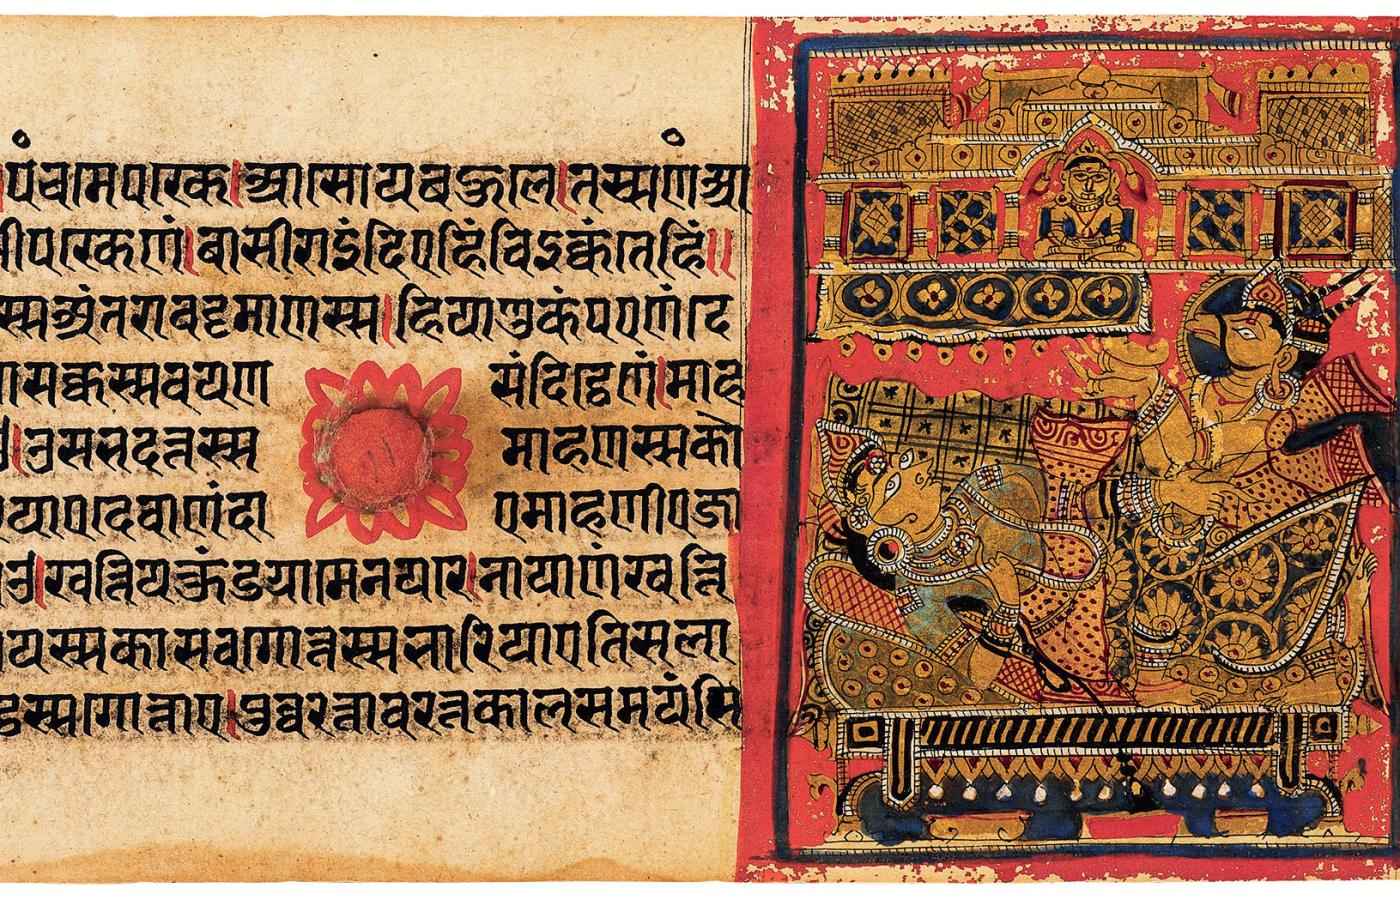 पंचमे पक्खे।आसोयबहुले।तस्सणं आ
पक्खेणं।बासीराइंदिएहिं विइक्कंतेहिं॥
स्स अंतरा वट्टमाणस्स।हियाणुकंपएणं दे
सक्कस्सवयण संदिट्ठेणं।माह
।उसभदत्तस्स माहणस्स को
देवाणंदा ए माहणीए जा
।खत्तियकुंडग्गामे नयरे।नायाणं खत्ति
यस्स कासवगोत्तस्स भारियाए तिसला
स्सगोत्ताए।पुव्वरत्तावरत्तकालसमयंसि